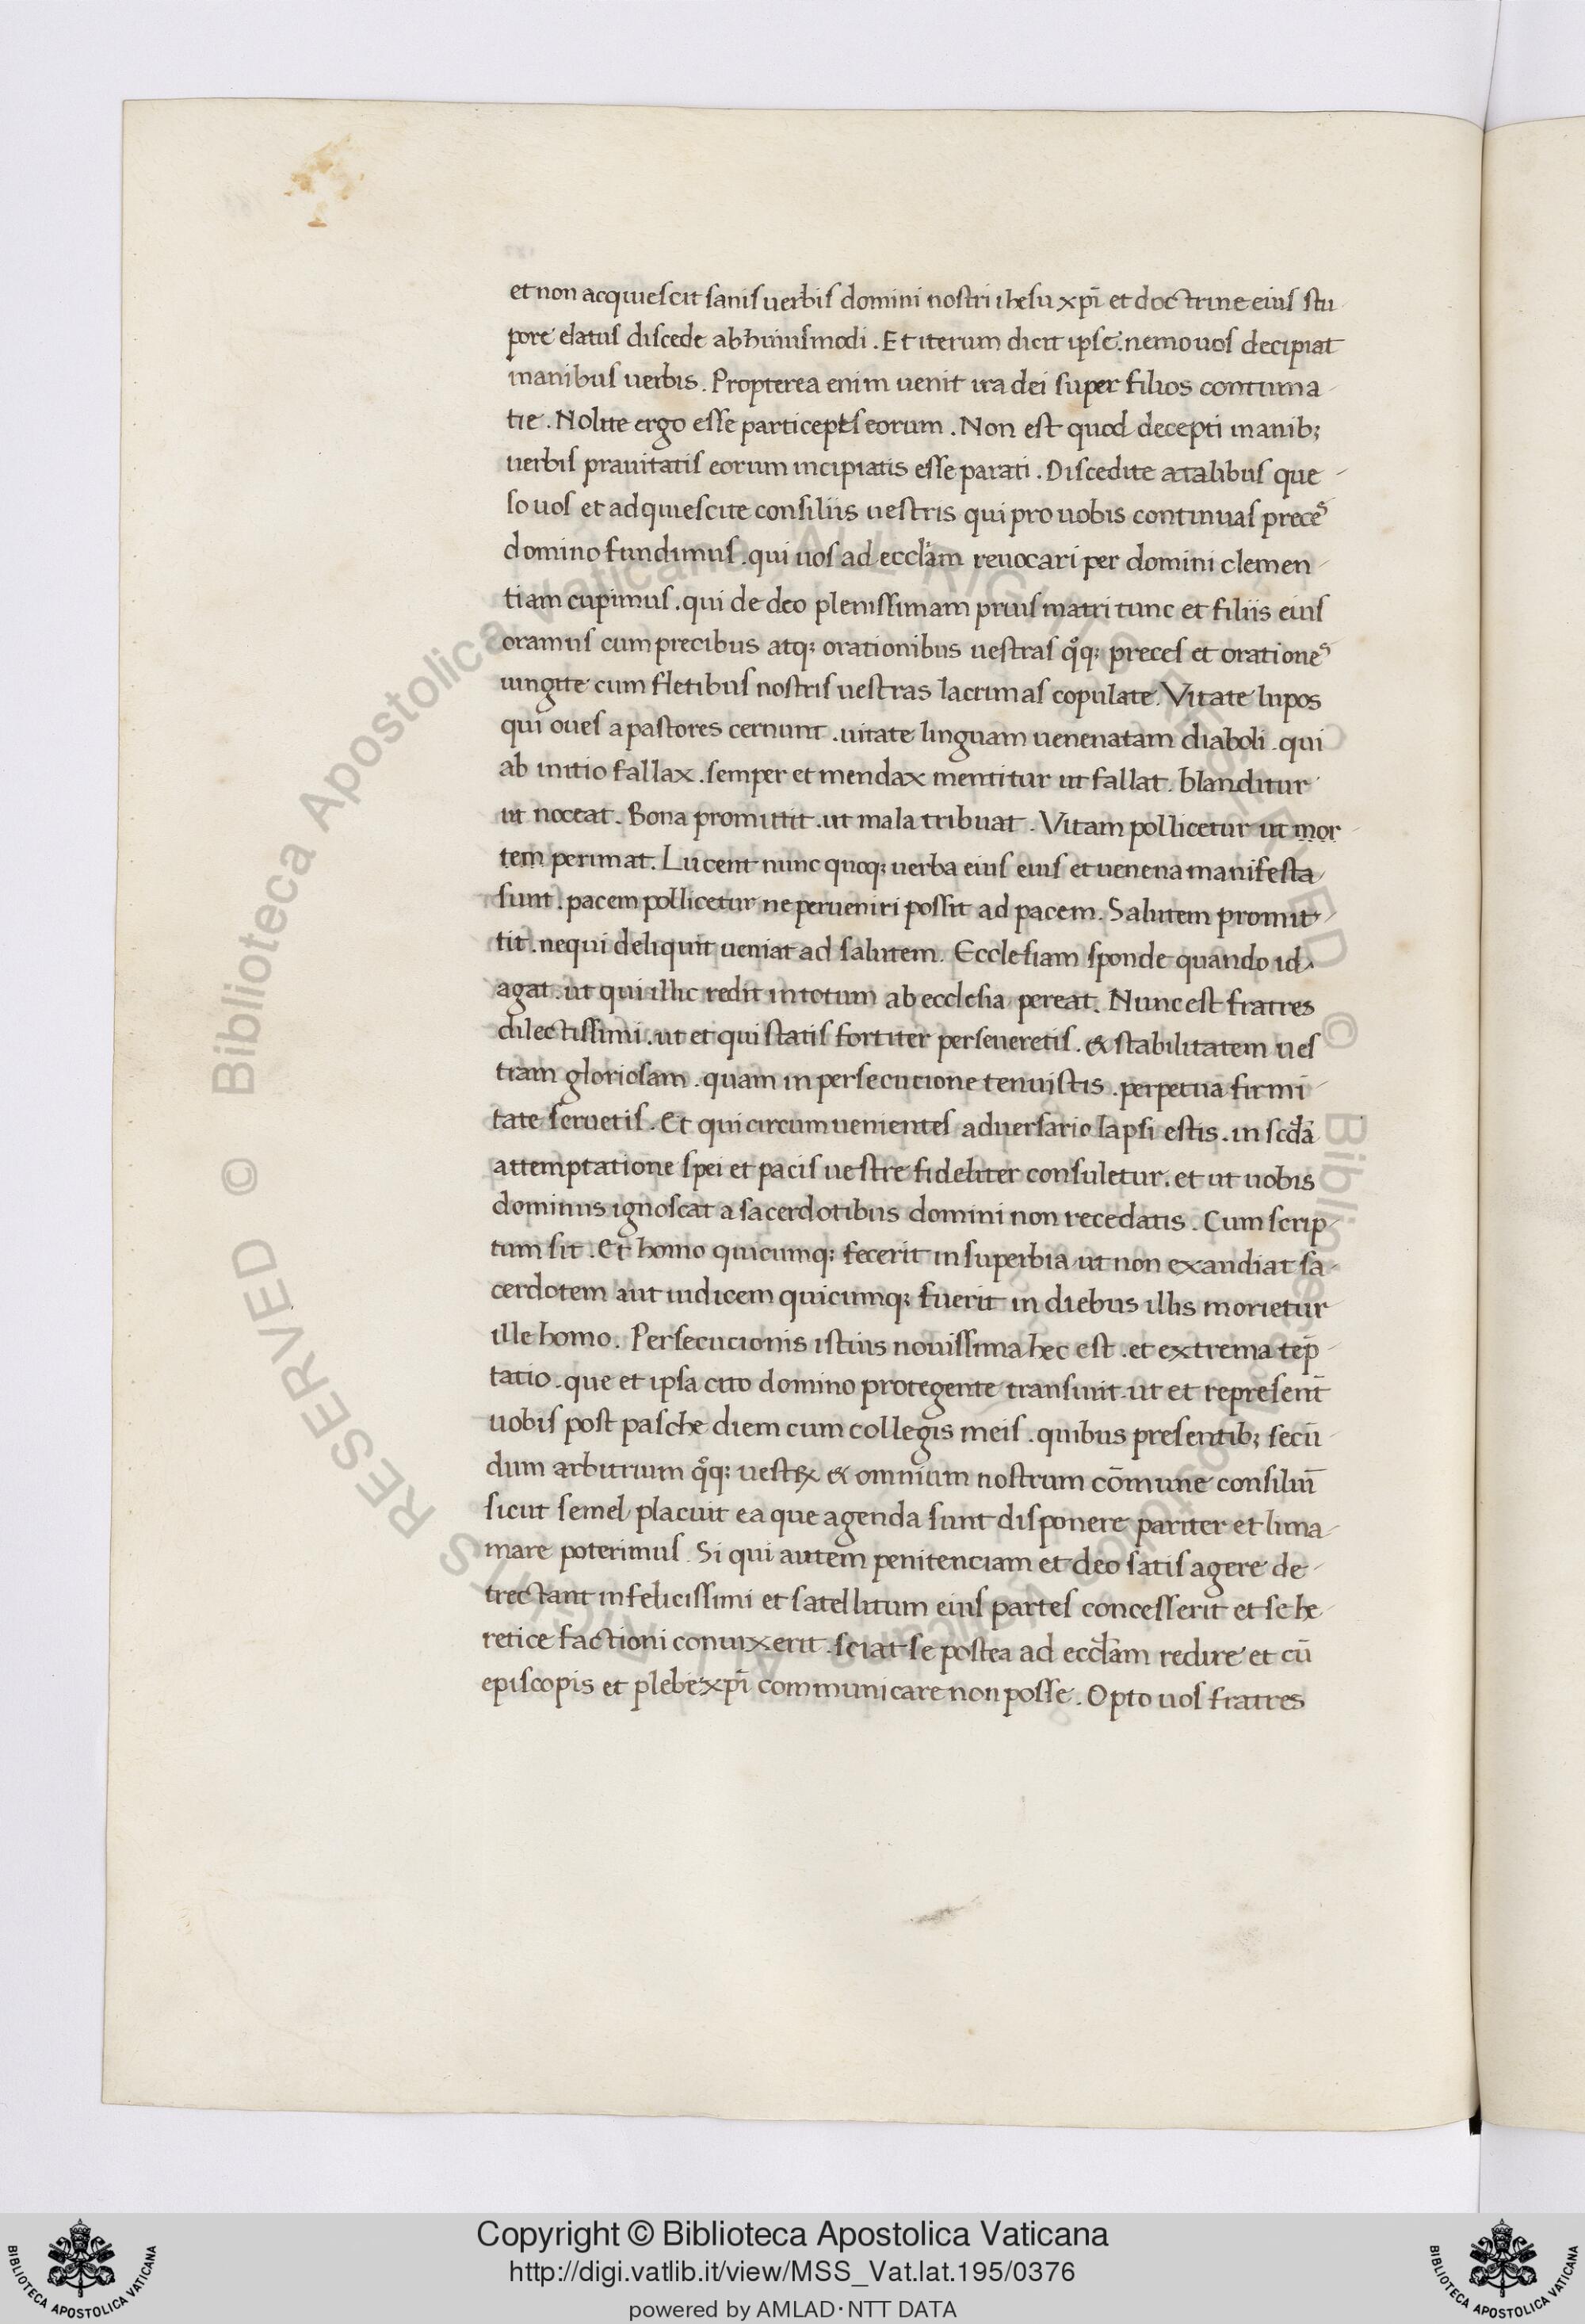 et non acquiescit sanis uerbis domini nostri ihesu xpi̅ et doctrine eius stu
pore elatus discede ab huiusmodi . Et iterum dicit ipse . nemo uos decipiat
inanibus uerbis . Propterea enim uenit ira dei super filios contuma
tie . Nolite ergo esse participes eorum . Non est quod decepti inanib;
uerbis prauitatis eorum incipiatis esse parati . Discedite a talibus que
so uos et adquiescite consiliis uestris qui pro uobis continuas preces
domino fundimus . qui uos ad eccl̅am reuocari per domini clemen
tiam cupimus . qui de deo plenissimam prius matri tunc et filiis eius
oramus cum precibus atq; orationibus uestras qͦq; preces et orationes
iungite cum fletibus nostris uestras lacrimas copulate . Vitate lupos
qui oues a pastores cernunt . uitate linguam uenenatam diaboli . qui
ab initio fallax . semper et mendax mentitur ut fallat . blanditur
ut noceat . Bona promittit . ut mala tribuat . Vitam pollicetur ut mor
tem perimat . Lucent nunc quoq; uerba eius eius et uenena manifesta
sunt . pacem pollicetur ne perueniri possit ad pacem . Salutem promit
tit . ne qui deliquit ueniat ad salutem . Ecclesiam sponde quando id
agat . ut qui illic redit in totum ab ecclesia pereat . Nunc est fratres
dilectissimi . ut et qui statis fortiter perseueretis . & stabilitatem ues
tram gloriosam . quam in persecucione tenuistis . perpetua firmi
tate seruetis . Et qui circumuenientes aduersario lapsi estis . in scd̅a
attemptatione spei et pacis uestre fideliter consuletur . et ut uobis
dominus ignoscat a sacerdotibus domini non recedatis . Cum scrip
tum sit . Et homo quicumq; fecerit in superbia ut non exaudiat sa
cerdotem aut iudicem quicumq; fuerit in diebus illis morietur
ille homo . Persecucionis istius nouissima hec est . et extrema tep̅
tatio . que et ipsa cito domino protegente transiuit . ut et represent̅
uobis post pasche diem cum collegis meis . quibus presentib; secu̅
dum arbitrium qͦq; uestꝝ & omnium nostrum co̅mune consiliu̅
sicut semel placuit ea que agenda sunt disponere pariter et lima
mare poterimus . Si qui autem penitenciam et deo satis agere de
trectant infelicissimi et satellitum eius partes concesserit et se he
retice factioni coniuxerit . sciat se postea ad eccl̅am redire et cu̅
episcopis et plebe xpi̅ communicare non posse . Opto uos fratres
Copyright © Biblioteca Apostolica Vaticana
http://digi.vatlib.it/view/MSS_Vat.lat.195/0376
powered by AMLAD·NTT DATA